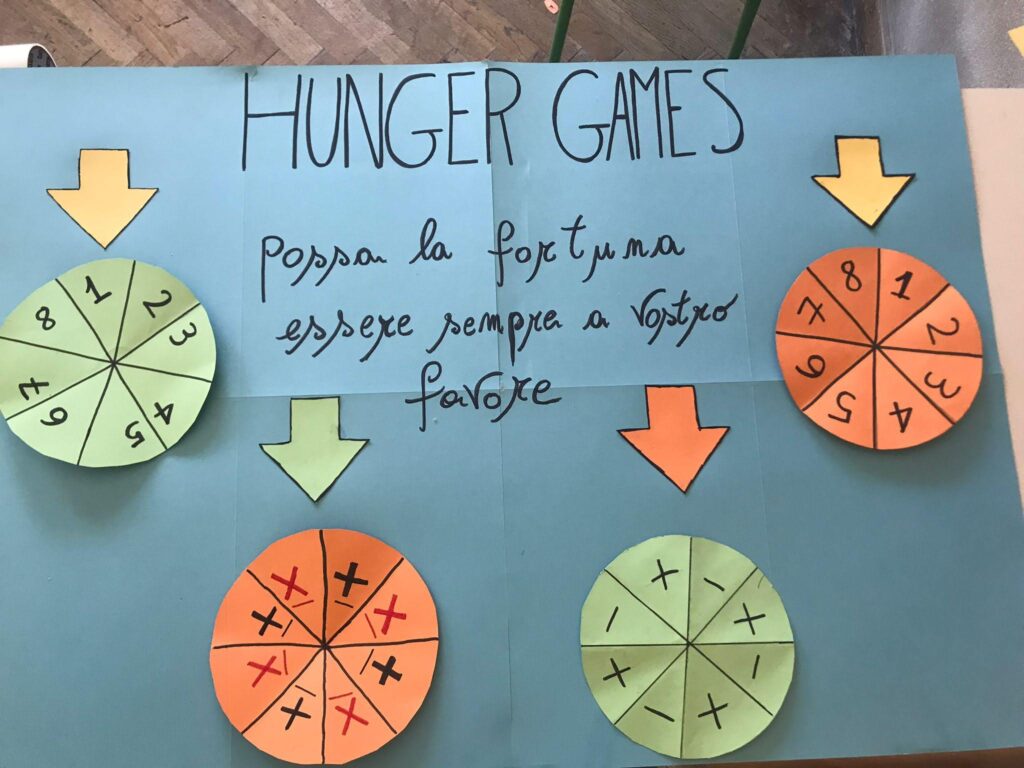 HUNGER GAMES
possa la fortuna
essere sempre a vostro
favore
1 2 3 4 5 6 7 8
1 2 3 4 5 6 7 8
± ± ± ± ± ± ± ±
− + − + − + − +